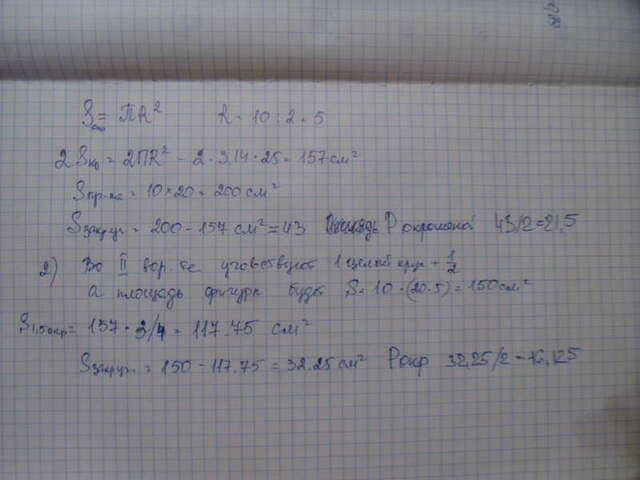 S = ПR² R = 10 : 2 = 5
2Sкр = 2ПR² = 2 · 3,14 · 25 = 157 см²
Sпр-ка = 10 * 20 = 200 см²
Sзакраш = 200 - 157 см² = 43 Площадь окрашеной 43/2 = 21,5
2) Во II вар-те учавствуют 1 целый круг + 1/2
а площадь фигуры будет S = 10 * (20-5) = 150 см²
S1,5 окр = 157 * 3/4 = 117.75 см²
Sзакраш = 150 - 117.75 = 32.25 см² Pокр 32,25/2 = 16,125